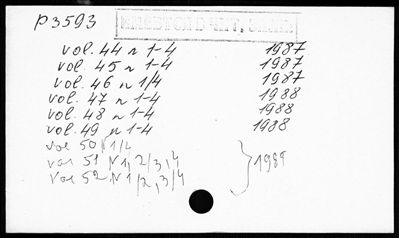 P3593
vol. 44 n 1-4 1987
vol. 45 n 1-4 1987
vol. 46 n 1/4 1987
vol. 47 n 1-4 1988
vol. 48 n 1-4 1988
vol. 49 n 1-4 1988
vol 50 N 1/2
vol 51 N 1, 2/3, 4 1989
vol 52 N 1/2, 3/4